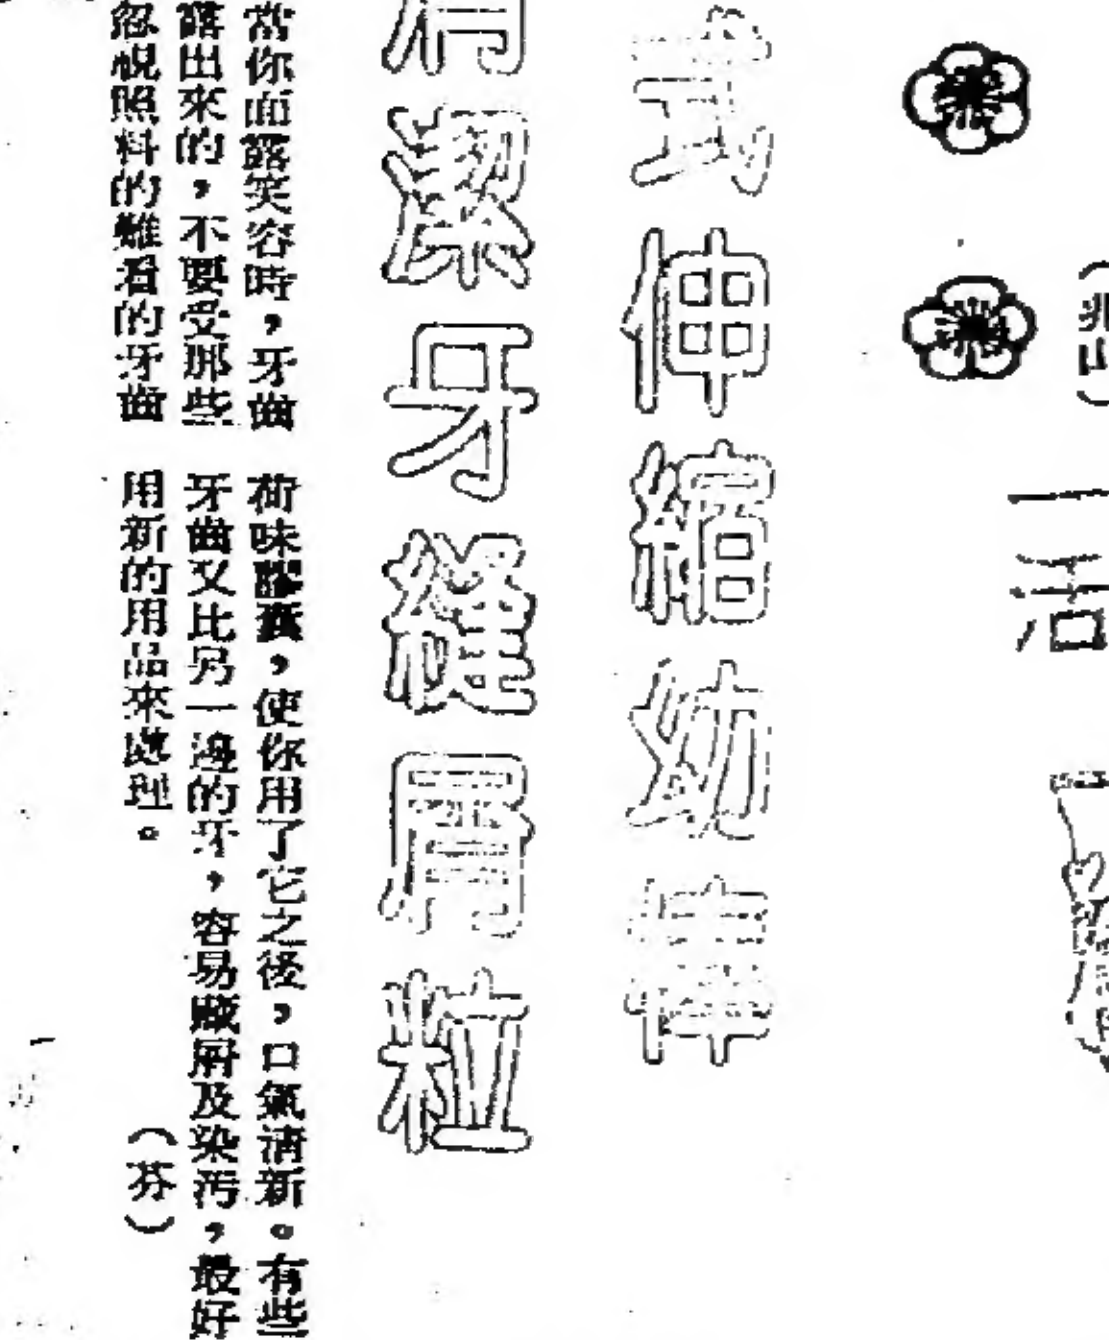 式伸縮幼棒
清潔牙縫屑粒
當你面露笑容時，牙齒
露出來的，不要受那些
忽視照料的難看的牙齒
荷味膠囊，使你用了它之後，口氣清新。有些
牙齒又比另一邊的牙，容易藏屑及染污，最好
用新的用品來處理。
（芬）